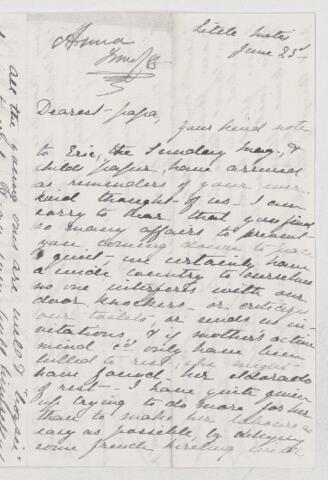 Anna
June
Little Metis
June 23d
Dearest papa,
Your kind note
to Eric, the Sunday Mag. &
childs paper have arrived
as reminders of your ever
kind thought of us. I am
sorry to hear that you find
so many affairs to prevent
you coming down to
quiet - we certainly have
a whole country to ourselves
no one interferes with our
door knockers - or criticizes
our toilets - or sends us in-
vitations & if mother's active
mind c'd only have been
lulled to rest, she might
have found her eldorado
of rest - I have quite given
up trying to do more for her
than to make her labours as
easy as possible, by
some french
all the young ones are well &